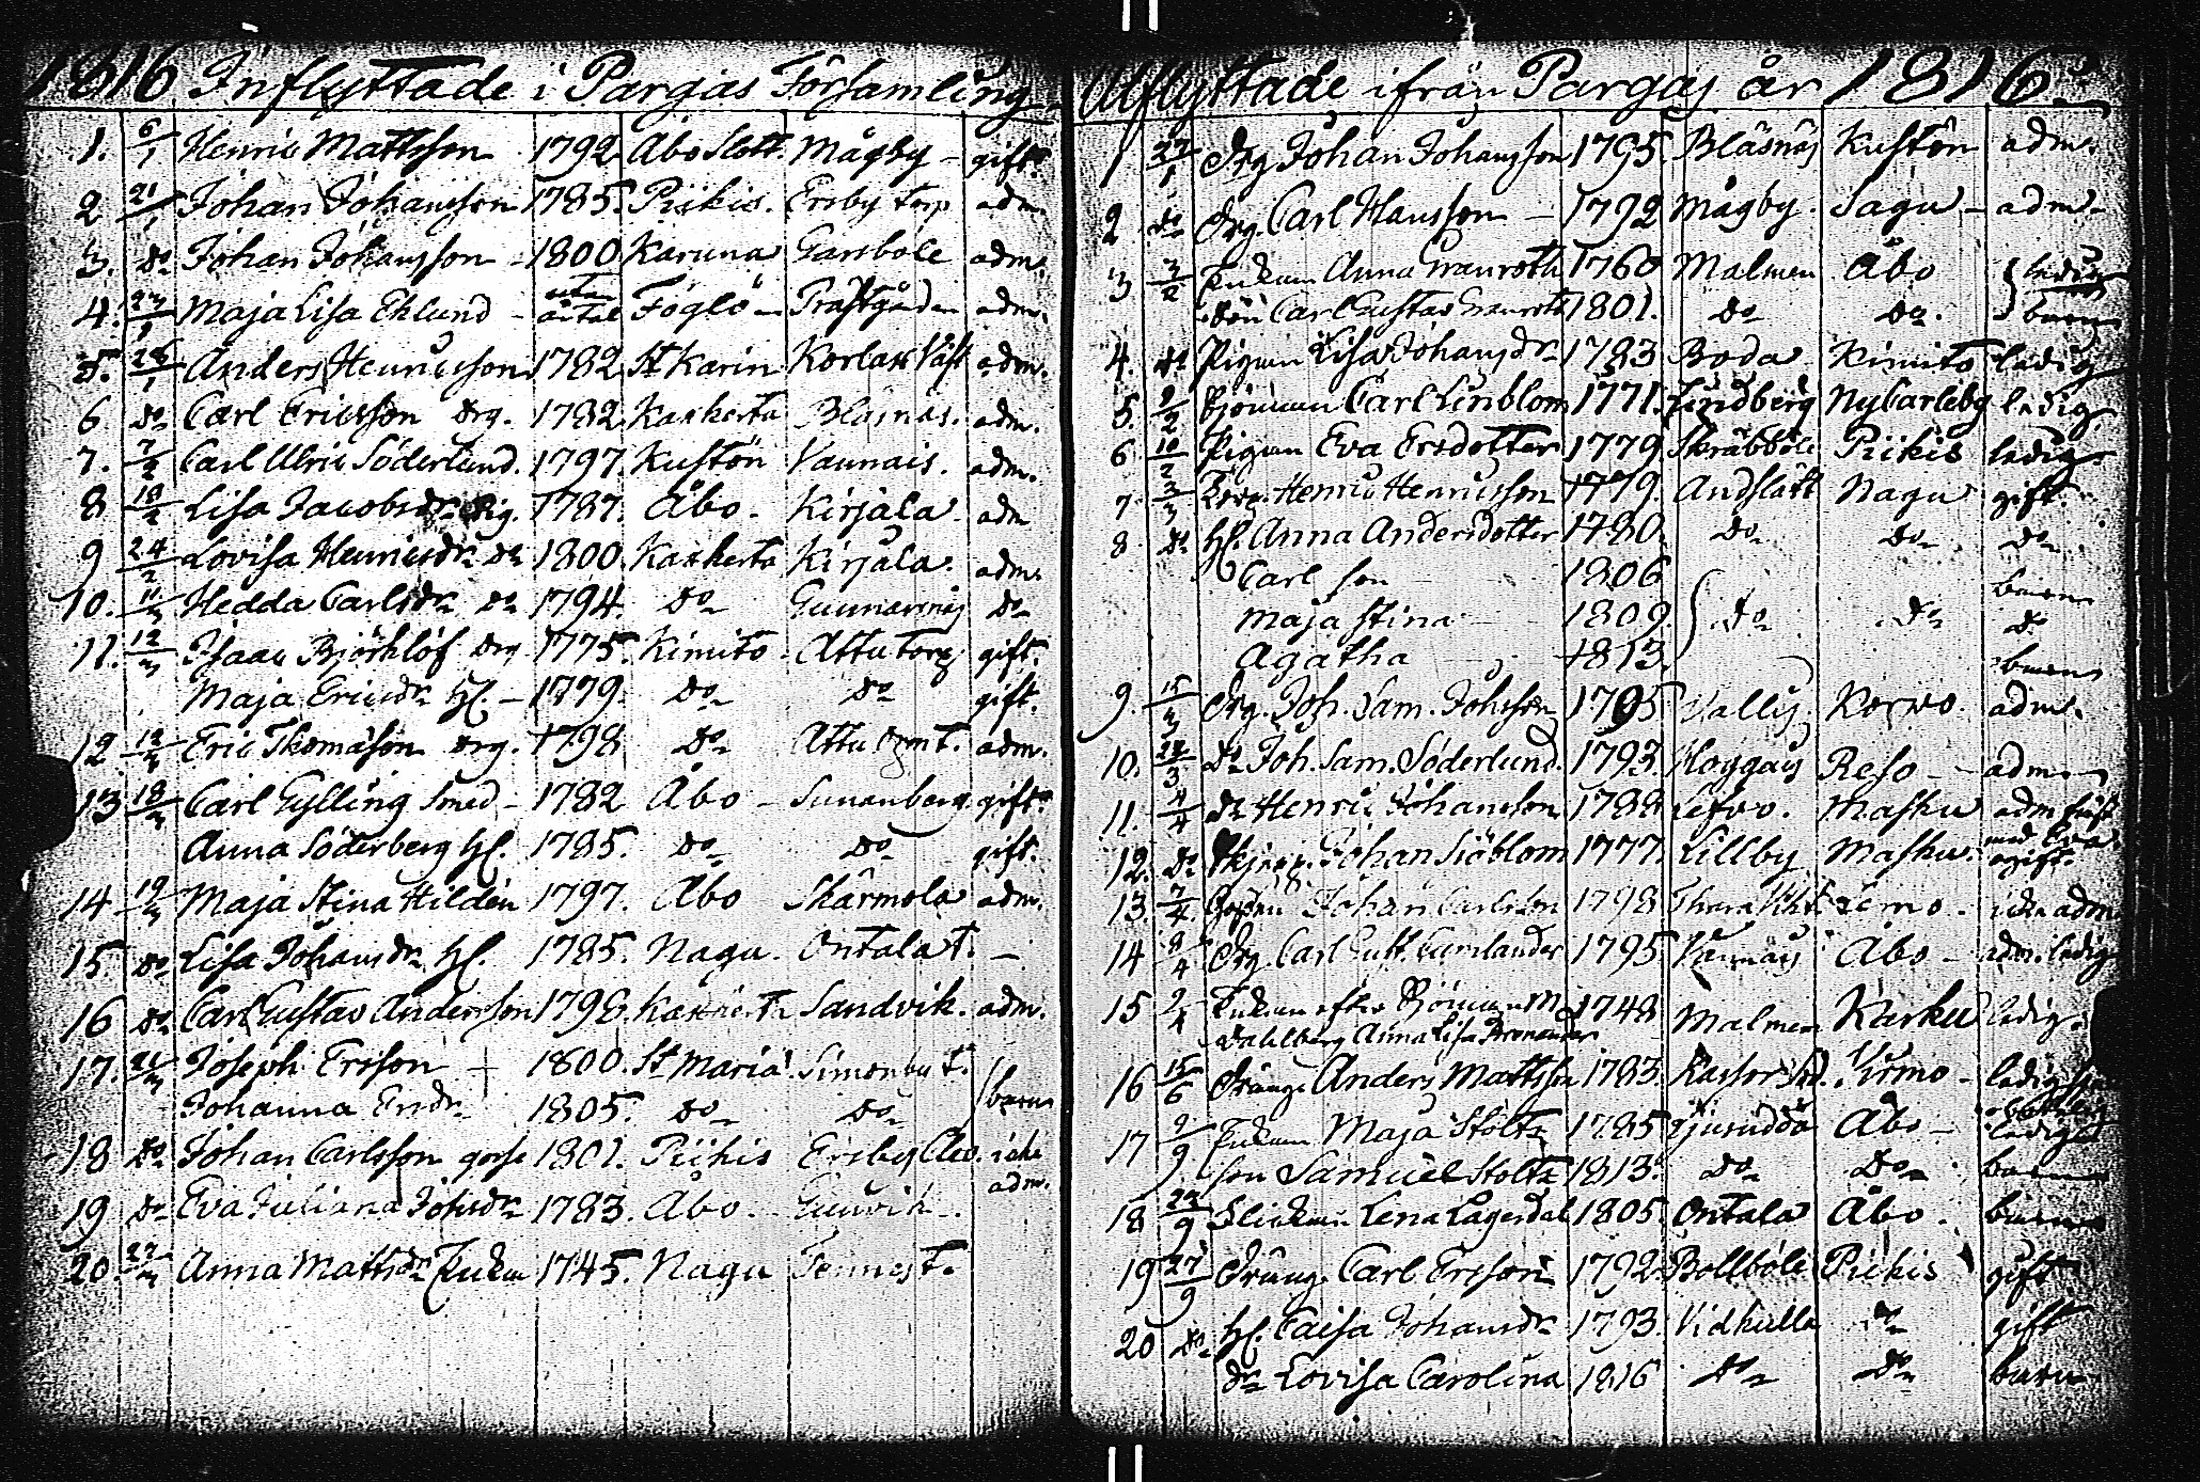 1816 Inflyttade i Pargas Församling
1. 6/1 Henric Mattsson 1792 Åbo Slott. Mågby - gift.
2 21/1 Johan Johansson 1785. Piikis. Ersby torp adm.
3. Do Johan Johansson - 1800. Karuna Garsböle adm.
4. 23/1 Maja Lisa Eklund - utan årtal Föglö - Prästgården adm.
5. 26/1 Anders Henricsson 1782 St Karin Korlax Väst adm.
6 Do Carl Ericsson drg. 1782 Kakskerta Bläsnäs. adm.
7. 7/2 Carl Ulric Söderlund. 1797. Kustön Vannais. adm.
8 18/2 Lisa Jacobsdr. Pig. 1787. Åbo. Kirjala adm
9 24/2 Lovisa Henricsdr Do 1800. Kakskerta Kirjala. adm.
10. 11/3 Hedda Carlsdr Do 1794. Do Gunnarsnäs Do
11. 12/3 Isaac Björklöf drg 1775. Kimito Attu torp gift.
Maja Ericsdr H. - 1779. Do Do gift.
12 12/3 Eric Thomasson drg. 1798 Do Attu t. adm.
13 18/3 Carl Gylling Smed - 1782 Åbo - Sunnanberg gift.
Anna Söderberg H. 1785. Do Do gift.
14 19/3 Maja Stina Hildén 1797. Åbo Skärmola adm.
15. Do Lisa Johansdr H. 1785. Nagu. Ontala t. -
16 Do Carl Gustav Andersson 1798. Kakskerta Sandvik. adm.
17. 21/3 Joseph Ersson 1800. St Maria. Simonby t. } barn
Johanna Ersdr 1805. Do Do
18 Do Johan Carlsson gosse 1801. Piikis Ersby icke adm.
19 Do Eva Juliana Johsdr 1783. Åbo. Gunvik.
20. 22/3 Anna Mattsdr Enkan 1745. Nagu Tennäs t.
Utflyttade ifrån Pargas år 1816.
1 27/1 Drg Johan Johansson 1795. Bläsnäs Kustön adm.
2 Do Drg. Carl Hansson - 1792 Mågby. Sagu - adm.
3 2/2 Enkan Anna Granroth 1760 Malmen Åbo } ledig
Son Carl Gustav Granroth 1801. Do Do. barn
4. Do Pigan Lisa Johansdr 1783 Boda Kimito ledig
5. 9/2 Björnman Carl Linblom 1771. Lindberg NyCarleby ledig
6 10/2 Pigan Eva Ersdotter 1779 Skräbböle Piikis ledig.
7. 3/3 Torp. Henric Henricsson 1779. Andslätt Nagu gift.
8 Do H. Anna Andersdotter 1780. Do Do Do
Carl son 1806 barn
Maja Stina 1809. } Do Do Do
Agatha 1813. barn
9. 15/3 Drg. Joh. Sam. Johsson 1795 Vallis. Korpo. adm.
10. 23/3 Do Joh. Sam. Söderlund. 1793. Hoggais Reso - adm.
11. 4/4 Do Henric Johansson 1788 Lofvo. Masku adm fäst
12. Do Johan Siöblom 1777. Lillby Masku. med Eva. ogift.
13. 7/4 Gossen Johan Carlsson 1798 Lemo. icke adm
14 9/4 Drg. Carl Gust. 1795 Vannäs Åbo - adm. ledig
15 9/4 Enkan efter Björnman 1748 Malmen Karku ledig.
Dahlberg Anna Lisa
16 15/6 Dräng. Anders Mattsson 1783. Virmo - ledig
17 9/9 Enkan Maja Stoltz 1785 Åbo - ledig
son Samuel Stoltz 1813. Do Do barn
18 22/9 Flickan Lena Lagerdal 1805. Ontala Åbo. barn
19 27/9 Dräng. Carl Ersson 1792 Bollböle Piikis gift
20 Do H. Caisa Johansdr 1793. Vidkulla Do gift
dr Lovisa Carolina 1816 Do Do barn